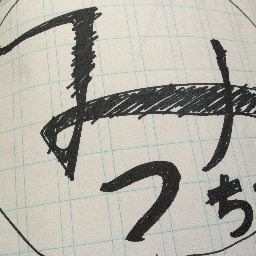 み
つち